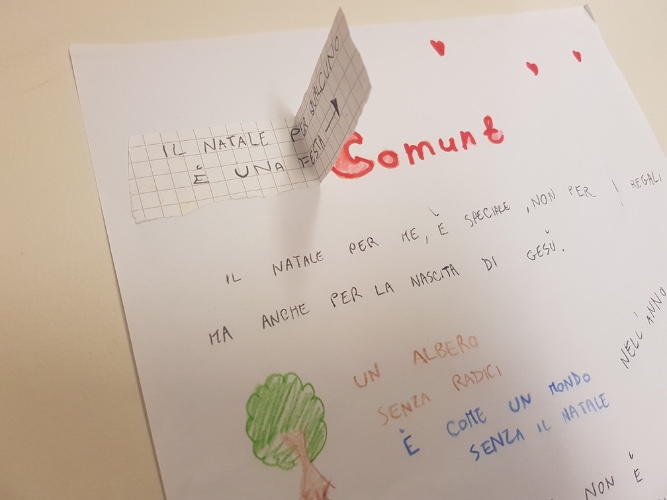 IL NATALE PER QUALCUNO
È UNA FESTA →
Comunt
IL NATALE PER ME, È SPECIALE, NON PER I REGALI
MA ANCHE PER LA NASCITA DI GESÙ.
UN ALBERO
SENZA RADICI
È COME UN MONDO
SENZA IL NATALE
NELL'ANNO
NON È